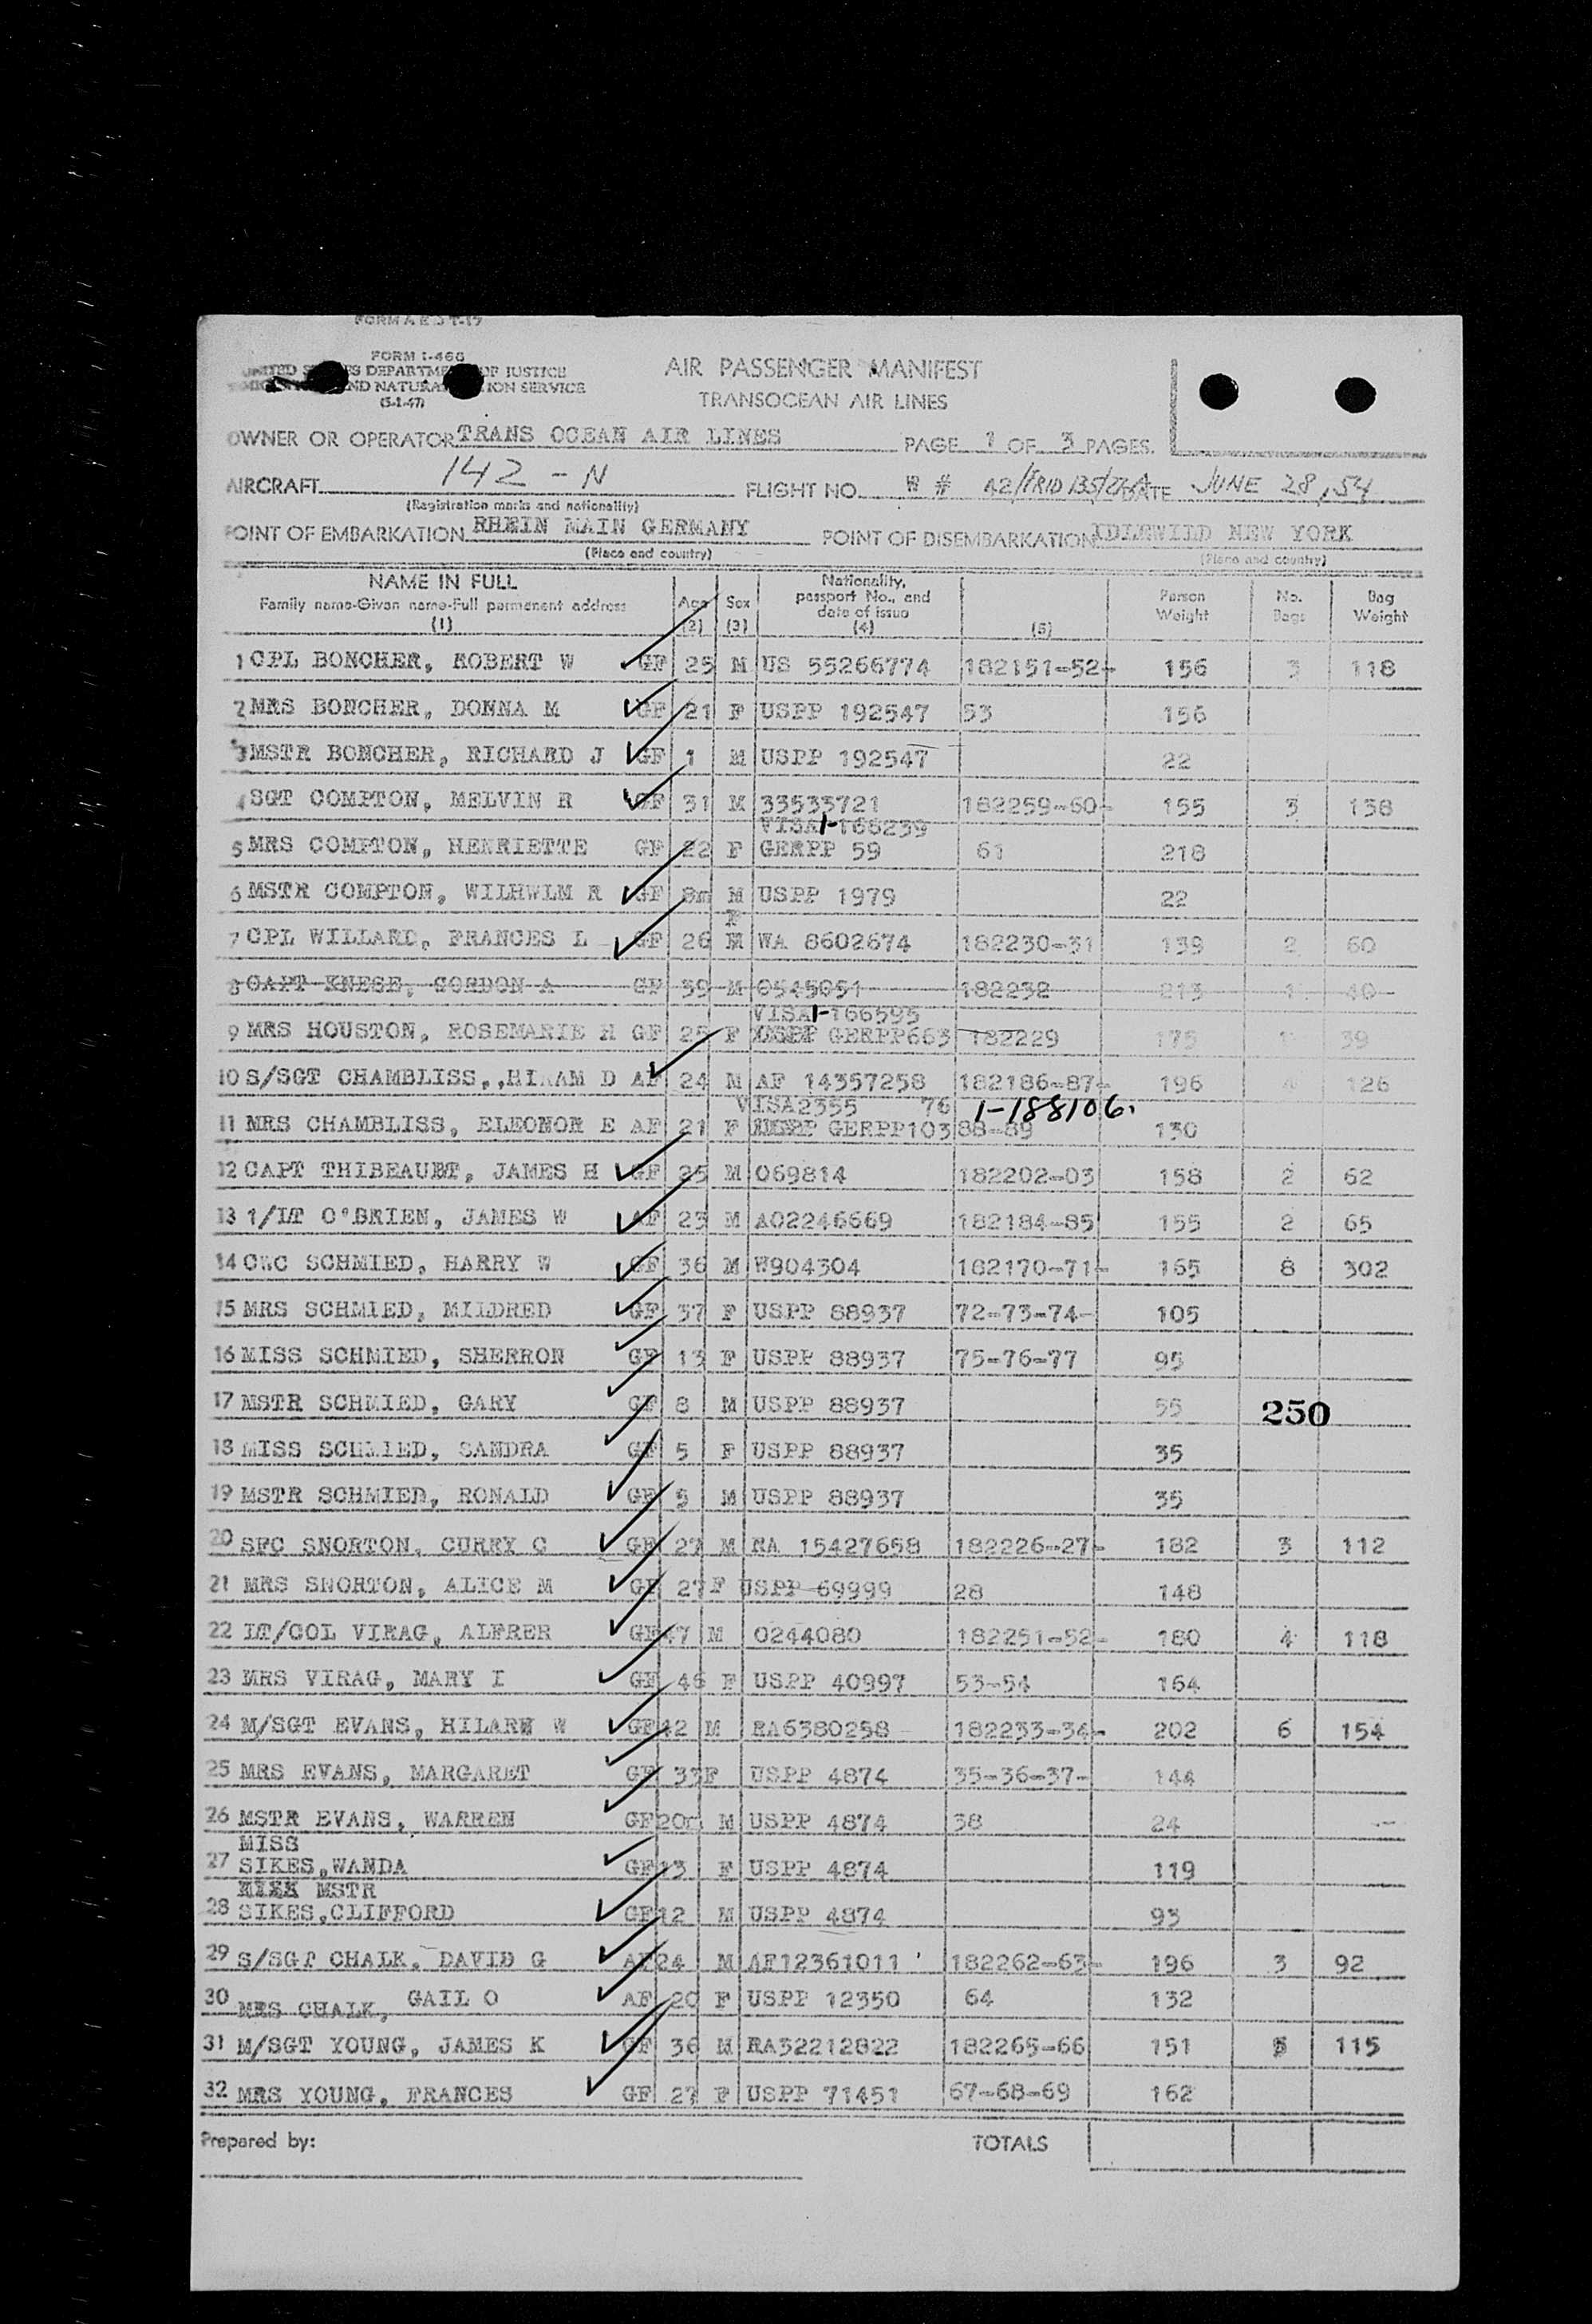 FORM A E 3 T-17
FORM I-466
UNITED STATES DEPARTMENT OF JUSTICE
AND NATURALIZATION SERVICE
(5-1-47)
AIR PASSENGER MANIFEST
TRANSOCEAN AIR LINES
OWNER OR OPERATOR TRANS OCEAN AIR LINES PAGE 1 OF 3 PAGES.
AIRCRAFT 142 - N FLIGHT NO. W # DATE JUNE 28, 54
(Registration marks and nationality)
POINT OF EMBARKATION RHEIN MAIN GERMANY POINT OF DISEMBARKATION IDLEWILD NEW YORK
(Place and country) (Place and country)
NAME IN FULL
Family name-Given name-Full permanent address
(1)
Age (2) Sex (3) Nationality, passport No., and date of issue (4) (5) Person Weight No. Bags Bag Weight
1 CPL BONCHER, ROBERT W GF 25 M US 55266774 182151-52- 156 3 118
2 MRS BONCHER, DONNA M GF 21 F USPP 192547 53 156
3 MSTR BONCHER, RICHARD J GF 1 M USPP 192547 22
4 SGT COMPTON, MELVIN R GF 31 M 33533721 182259-60- 155 3 138
VISA 1-166239
5 MRS COMPTON, HENRIETTE GF 22 F GERPP 59 61 218
6 MSTR COMPTON, WILHWLM R GF 8m M USPP 1979 22
F
7 CPL WILLARD, FRANCES L GF 26 M WA 8602674 182230-31 139 2 60
8 CAPT KNESE, GORDON A GF 39 M 0545051 182232 213 1 40
VISA 1-166595
9 MRS HOUSTON, ROSEMARIE H GF 25 F USPP GERPP663 182229 175 1 39
10 S/SGT CHAMBLISS,,HIRAM D AF 24 M AF 14357258 182186-87- 196 4 126
VISA2355 76 1-188106.
11 MRS CHAMBLISS, ELEONOR E AF 21 F USPP GERPP103 88-89 130
12 CAPT THIBEAUBT, JAMES H GF 25 M 069814 182202-03 158 2 62
13 1/LT O'BRIEN, JAMES W AF 23 M AO2246669 182184-85 155 2 65
14 CWC SCHMIED, HARRY W GF 36 M W904304 182170-71- 165 8 302
15 MRS SCHMIED, MILDRED GF 37 F USPP 88937 72-73-74- 105
16 MISS SCHMIED, SHERRON GF 13 F USPP 88937 75-76-77 95
17 MSTR SCHMIED, GARY GF 8 M USPP 88937 55 250
18 MISS SCHMIED, SANDRA GF 5 F USPP 88937 35
19 MSTR SCHMIED, RONALD GF 5 M USPP 88937 35
20 SFC SNORTON, CURRY C GF 27 M RA 15427658 182226-27- 182 3 112
21 MRS SNORTON, ALICE M GF 27 F USPP 69999 28 148
22 LT/COL VIRAG, ALFRER GF 47 M 0244080 182251-52- 180 4 118
23 MRS VIRAG, MARY I GF 46 F USPP 40997 53-54 164
24 M/SGT EVANS, HILARW W GF 42 M RA6380258 182233-34- 202 6 154
25 MRS EVANS, MARGARET GF 33 F USPP 4874 35-36-37- 144
26 MSTR EVANS, WARREN GF 20m M USPP 4874 38 24
MISS
27 SIKES,WANDA GF 13 F USPP 4874 119
MSTR
28 SIKES,CLIFFORD GF 12 M USPP 4874 93
29 S/SGT CHALK, DAVID G AF 24 M AF12361011 182262-63- 196 3 92
30 MRS CHALK, GAIL O AF 20 F USPP 12350 64 132
31 M/SGT YOUNG, JAMES K GF 36 M RA32212822 182265-66 151 5 115
32 MRS YOUNG, FRANCES GF 27 F USPP 71451 67-68-69 162
Prepared by: TOTALS